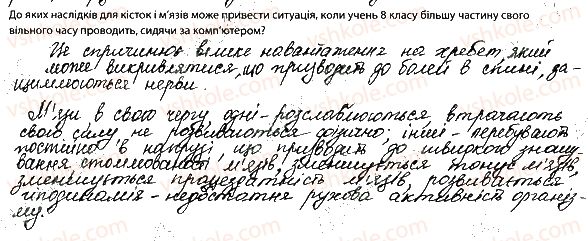 До яких наслідків для кісток і м'язів може привести ситуація, коли учень 8 класу більшу частину свого
вільного часу проводить, сидячи за комп'ютером?
Це спричинює велике навантаження на хребет, який
може викривлятися, що призводить до болей в спині, за-
щимлюються нерви.
М'язи в свою чергу, одні - розслаблюються, втрачають
свою силу, не розвиваються фізично; інші - перебувають
постійно в напрузі, що призводить до швидкого зношу-
вання стомлюваності м'язів, зменшується тонус м'язів,
зменшується працездатність м'язів, розвивається
гіподинамія - недостатня рухова активність організ-
му.